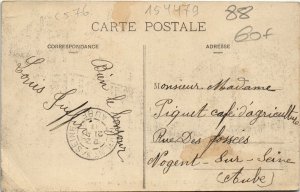 C576
154479
88
60f
CARTE POSTALE
CORRESPONDANCE
ADRESSE
Bien le bonjour
Louis
Monsieur Madame
Piquet café d'agriculture
Rue Des fossés
Nogent-Sur-Seine
(Aube)